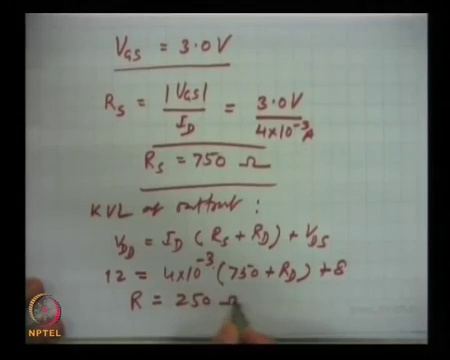 V_GS = 3.0 V
R_S = |V_GS| / I_D = 3.0 V / 4×10^-3 A
R_S = 750 Ω
KVL at output :
V_DD = I_D ( R_S + R_D ) + V_DS
12 = 4×10^-3 (750 + R_D) + 8
R = 250 Ω
NPTEL